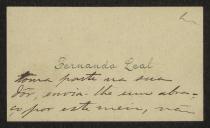 Fernando Leal
toma parte na sua
dôr, envia-lhe um abra-
ço por este meio, não